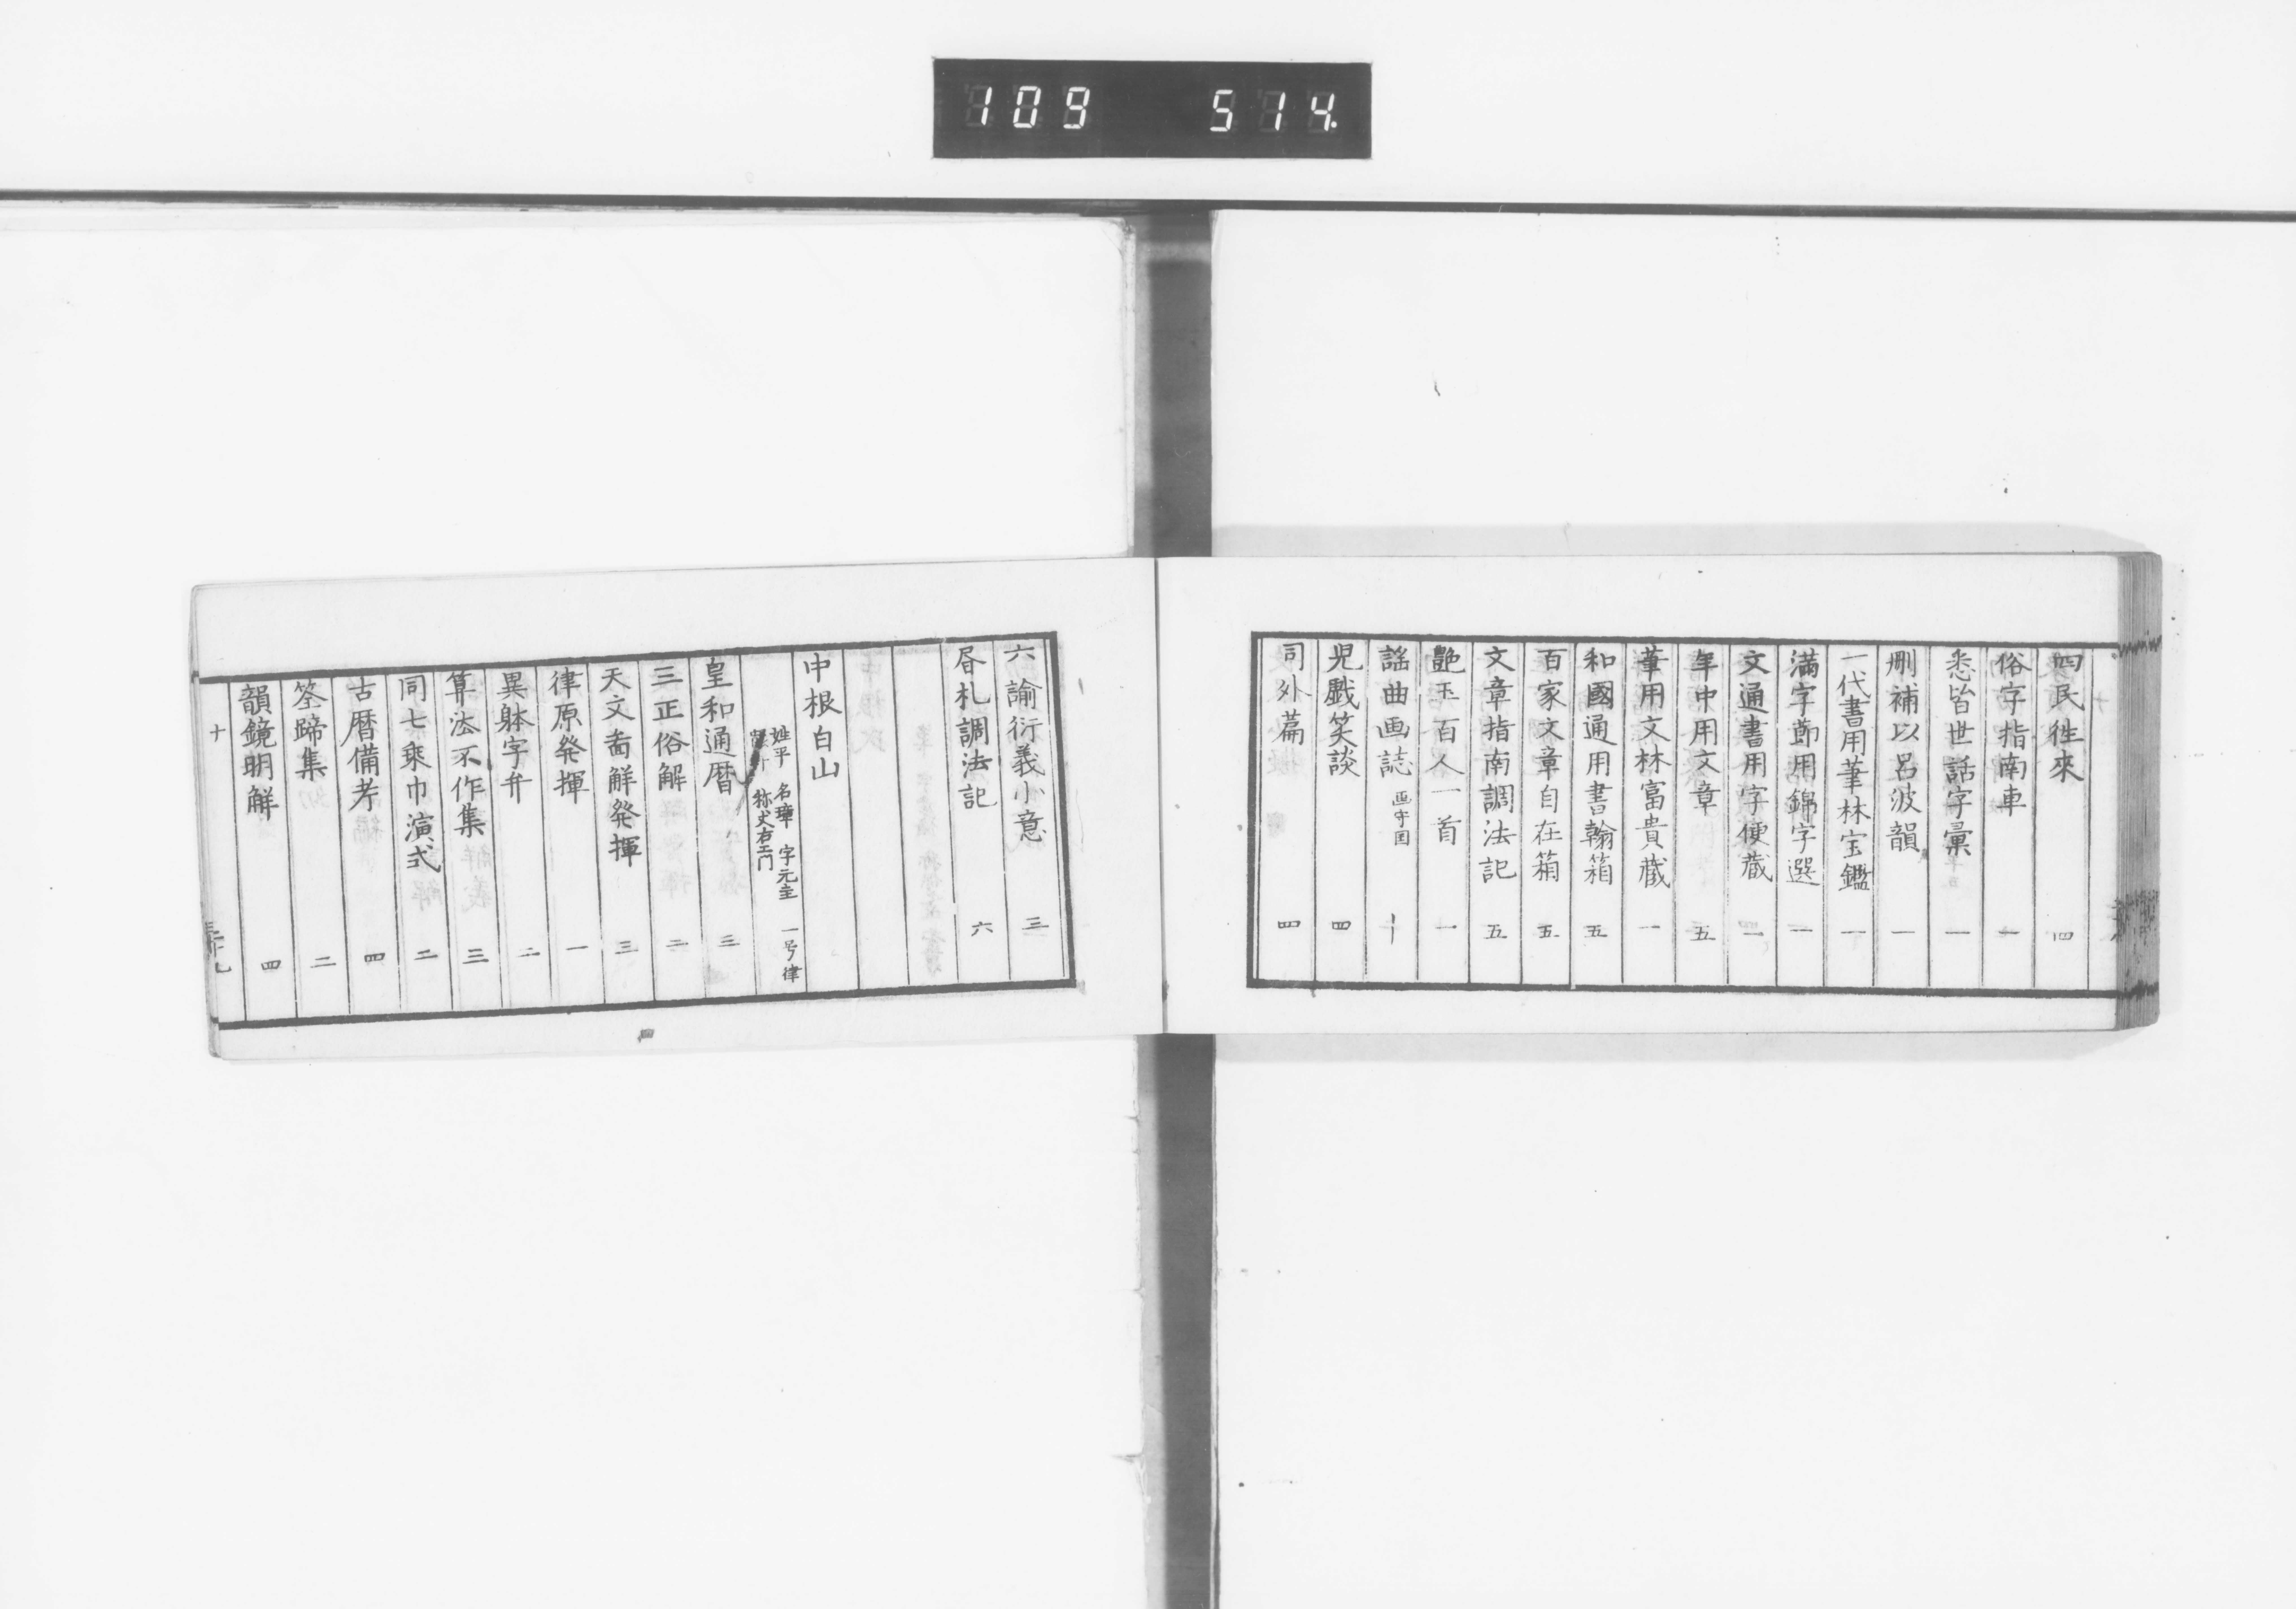 109 514.
四民徃來 四
俗字指南車 一
悉皆世話字彙 一
刪補以呂波韻 一
一代書用筆林宝鑑 一
満字節用錦字選 一
文通書用字便蔵 一
年中用文章 五
筆用文林富貴蔵 一
和國通用書翰箱 五
百家文章自在箱 五
文章指南調法記 五
艶玉百人一首 一
謡曲画誌 画守国 十
児戯笑談 四
司外篇 四
六諭衍義小意 三
昏札調法記 六
中根白山
姓平 名璋 字元圭 一号律
称丈右エ門
皇和通暦 三
三正俗解 二
天文啚解発揮 三
律原発揮 一
異躰字弁 二
算法不作集 三
同七乗巾演式 二
古暦備考 四
筌蹄集 二
韻鏡明解 四
十